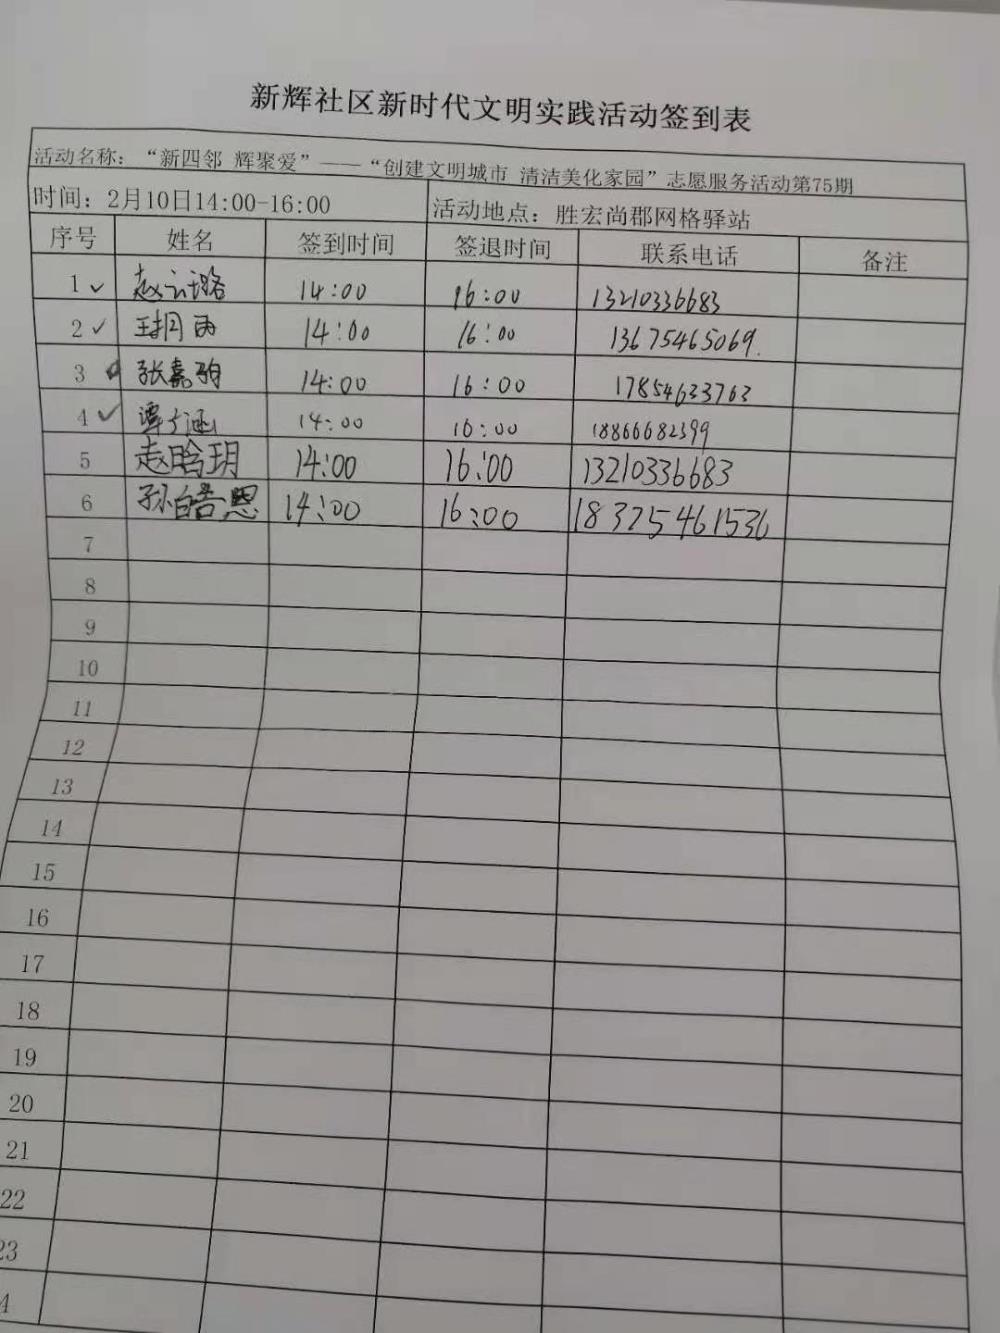 新辉社区新时代文明实践活动签到表
活动名称：“新四邻 辉聚爱”——“创建文明城市 清洁美化家园”志愿服务活动第75期
时间：2月10日14:00-16:00 活动地点：胜宏尚郡网格驿站
序号 姓名 签到时间 签退时间 联系电话 备注
1 ✓ 14:00 16:00 13210336683
2 ✓ 14:00 16:00 13675465069.
3 张嘉 14:00 16:00 17854633763
4 ✓ 谭 涵 14:00 16:00 18866682399
5 赵晗玥 14:00 16:00 13210336683
6 孙皓恩 14:00 16:00 18325461536
7
8
9
10
11
12
13
14
15
16
17
18
19
20
21
22
23
4